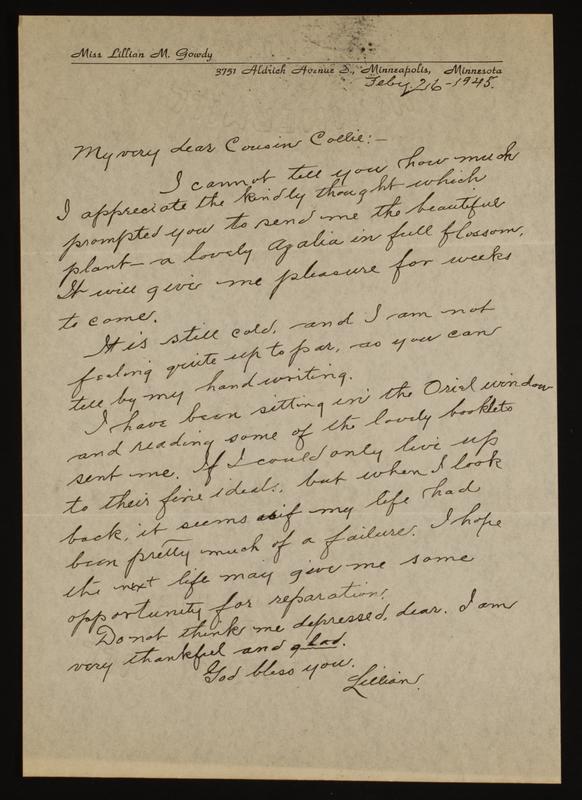 Miss Lillian M. Gowdy
3751 Aldrich Avenue S., Minneapolis, Minnesota
Feby. 26-1945.
My very dear Cousin Collie:-
I cannot tell you how much
I appreciate the kindly thought which
prompted you to send me the beautiful
plant - a lovely azalia in full flossom.
It will give me pleasure for weeks
to come.
It is still cold, and I am not
feeling quite up to par, as you can
tell by my handwriting.
I have been sitting in the Oriel window
and reading some of the lovely booklets
sent me. If I could only live up
to their fine ideals, but when I look
back, it seems as if my life had
been pretty much of a failure. I hope
the next life may give me some
opportunity for reparation.
Do not think me depressed, dear. I am
very thankful and glad.
God bless you.
Lillian.